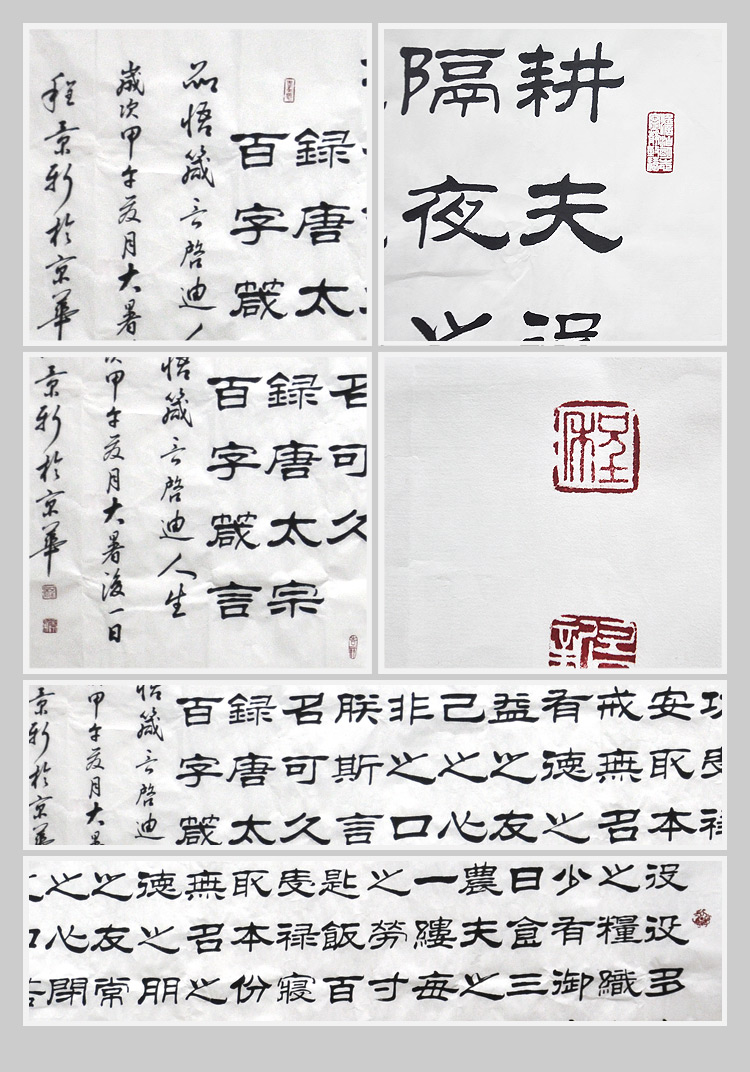 録唐太
百字箴
品悟箴言啓迪人
歲次甲午夏月大暑
程景新於京華
耕夫役
隔夜之
名可久
録唐太宗
百字箴言
悟箴言啓迪人生
次甲午夏月大暑後一日
景新於京華
程
景新
安取本
戒無名
有德之
益之友
己之心
非之口
朕斯言
名可久
録唐太
百字箴
悟箴言啓迪
甲午夏月大暑
景新於京華
役役多
之糧織
少有御
日食三
農夫之
一縷每
之勞寸
匙飯百
受禄寢
取本份
無名之
德之朋
之友常
之心閉